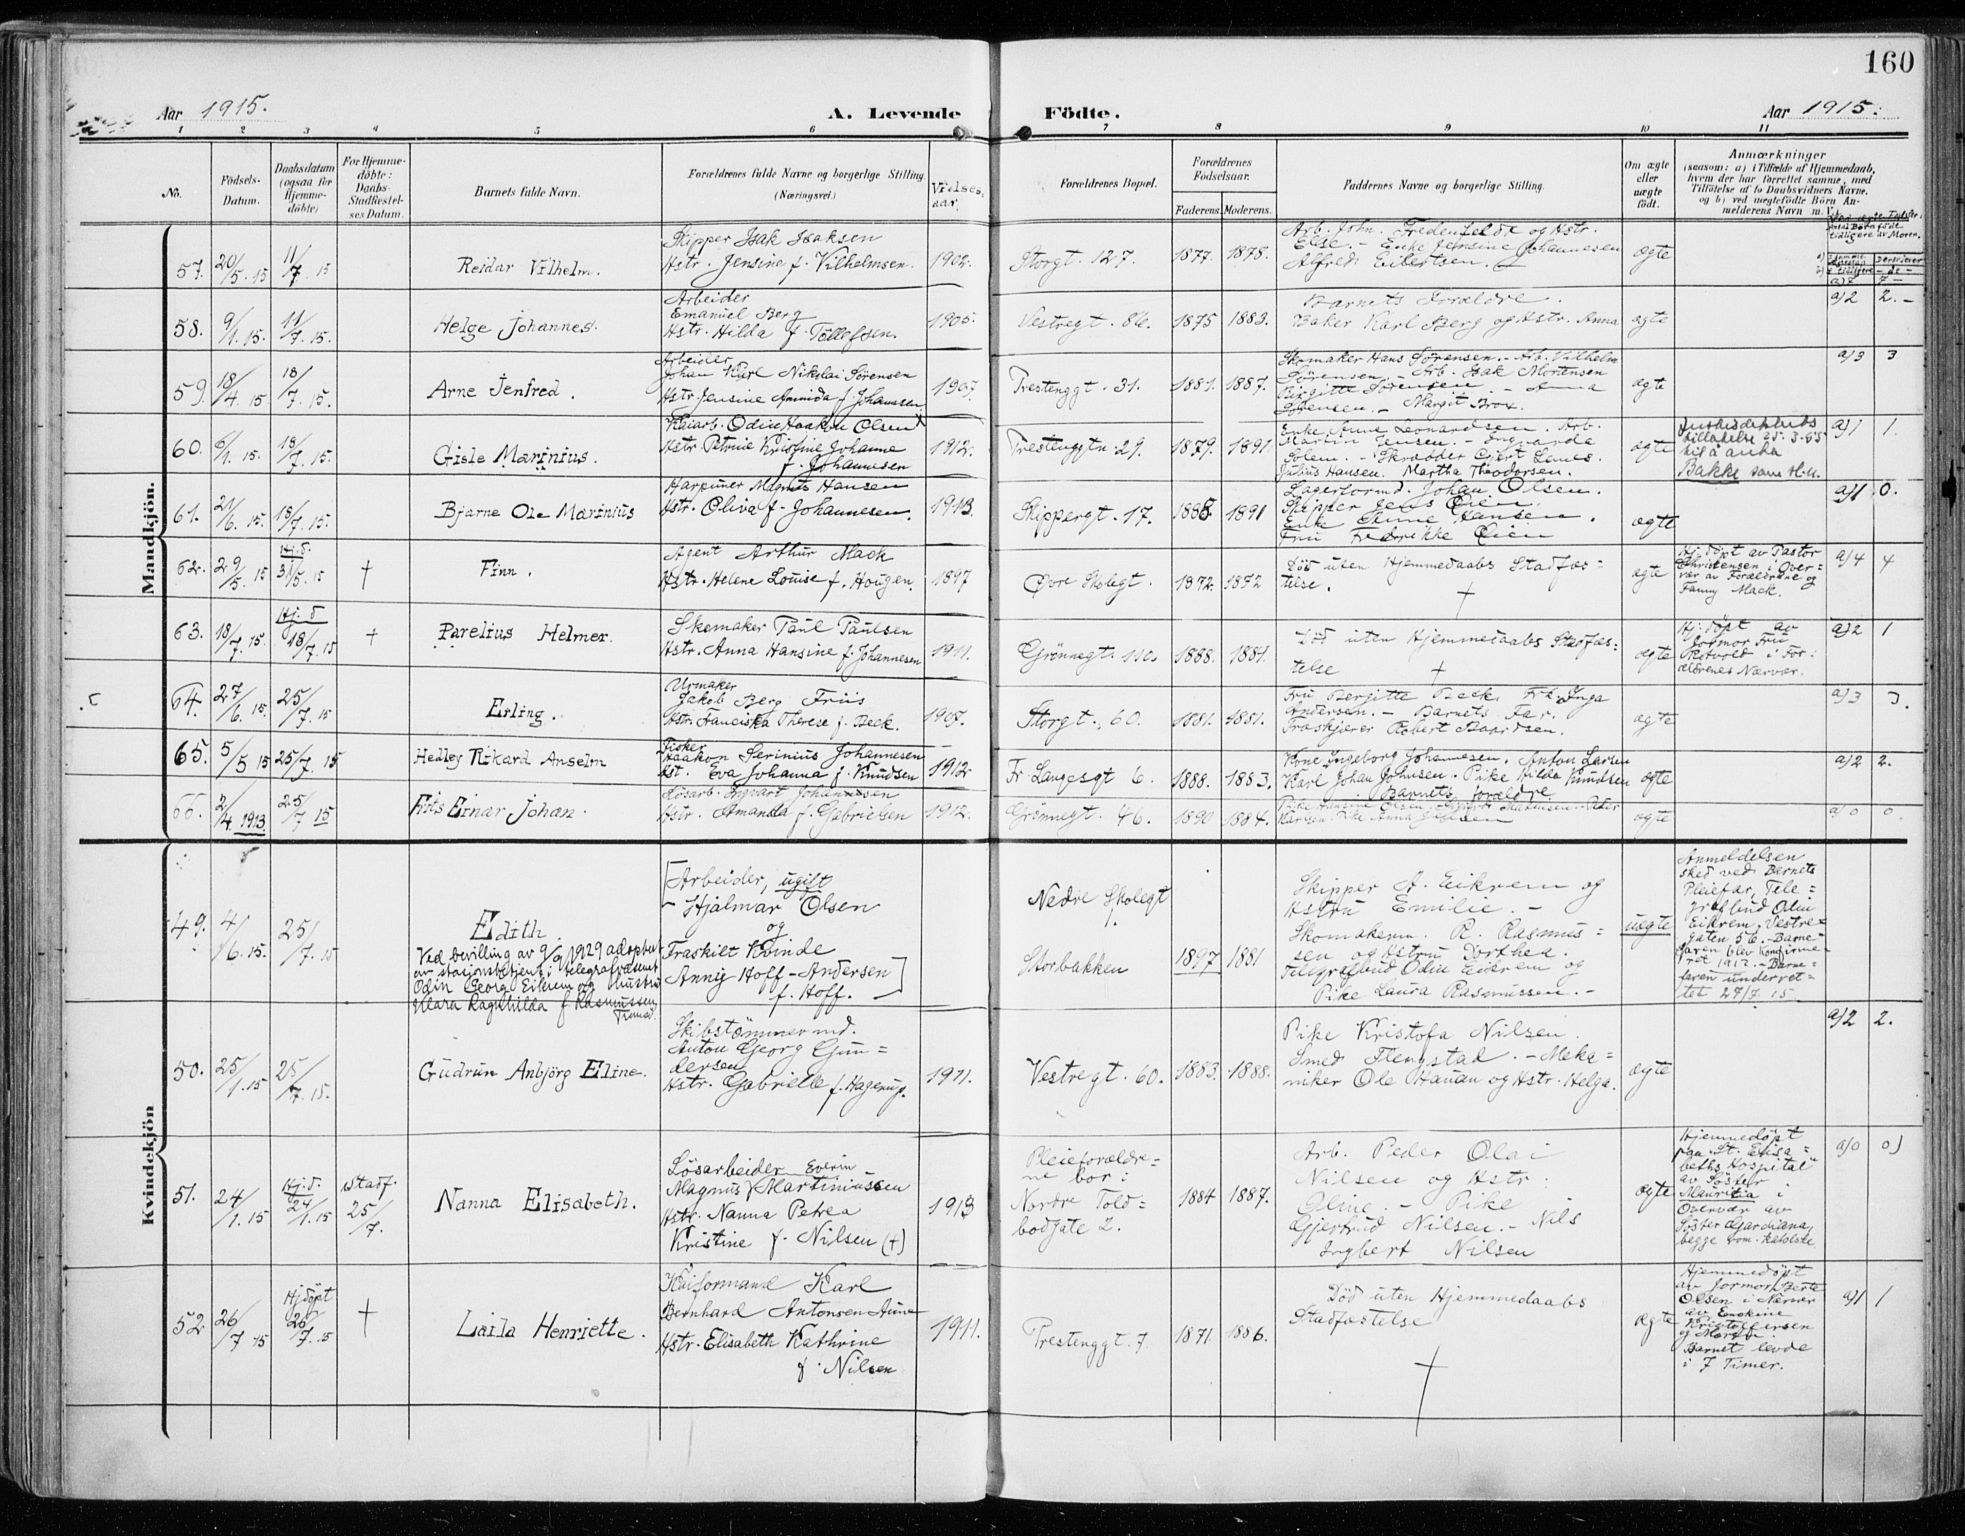 160
Aar 1915.
A. Levende Födte.
Aar 1915.
1 2 3 4 5 6 7 8 9 10 11
No.
Födsels-
Datum.
Daabsdatum
(ogsaa for
Hjemme-
döbte)
For Hjemme-
döbte:
Daabs-
Stadfestel-
ses Datum.
Barnets fulde Navn.
Forældrenes fulde Navne og borgerlige Stilling.
(Næringsvei.)
Vielses-
aar.
Forældrenes Bopæl.
Forældrenes
Födselsaar.
Faderens. Moderens.
Faddernes Navne og borgerlige Stilling.
Om ægte
eller
uægte
födt.
Anmærkninger
(saasom: a) i Tilfælde af Hjemmedaab,
hvem der har forrettet samme, med
Tilföielse af to Daabsvidners Navne,
og b) ved uegtefödte Börn An-
melderens Navn m. V.
Mandkjön.
57. 20/5. 15 11/7 15
Reidar Vilhelm.
Skipper Isak Isaksen
Hstr. Jensine f. Vilhelmsen.
1902.
Storgt. 127. 1877. 1878.
Else. - Enke Jensine Johannesen
Alfred Eilertsen.
ægte
a) 7 7 -
58. 9/1. 15. 11/7. 15.
Helge Johannes.
Arbeider
Emanuel Berg
Hstr. Hilda f. Tollefsen.
1905.
Vestregt. 86. 1875 1883.
Barnets Forældre.
Baker Karl Berg og Hstr. Anna
ægte
a) 2 2. -
59. 18/4. 15 18/7. 15.
Arne Jenfred.
Arbeider
Johan Karl Nikolai Sörensen
Hstr. Jensine Aminda f. Johansen
1907.
Prestenggt. 31. 1881. 1887.
Skomaker Hans Sörensen. - Arb. Vilhelm
Sörensen. - Arb. Isak Mortensen
Birgitte Sörensen - Anna
Sörensen. - Margit Brox.
ægte
a) 3 3
60. 6/1. 15. 18/7. 15.
Gisle Marinius.
Kaiarb. Odin Haakon Olsen
Hstr Petrine Kristine Johanne
f. Johannesen
1912.
Prestenggtn 29. 1879. 1891
Enke Anne Leonardsen. Arb.
Martin Jensen. - Ingvarda
Solem. - Skrædder Ejert Lenes.
Julius Hansen. Martha Theodorsen.
ægte
tillatelse 25. 3. 65
til å anta
Bakke som sl.n.
a) 1 1.
61. 21/6. 15. 18/7. 15.
Bjarne Ole Marinius
Harpuner Magnus Hansen
Hstr. Oliva f. Johannesen.
1913.
Skippergt. 17. 1888 1891
Lagerformd. Johan Olsen.
Skipper Jens Öien.
Enke Anne Hansen.
Fru Fredrikke Öien
ægte
a) 1 0.
62. 29/5. 15 Hj.d. 31/5. 15 †
Finn.
Agent Arthur Mack
Hstr. Helene Louise f. Hougen.
1897
Övre Skolegt. 1872. 1872
Död uten Hjemmedaabs Stadfæs-
telse.
†
ægte
Hj. döpt av Pastor
Christensen i Over-
vær av Forældrene og
Fanny Mack.
a) 4 4
63. 18/7. 15 Hj.d 18/7. 15 †
Parelius Helmer.
Skomaker Paul Paulsen
Hstr. Anna Hansine f. Johannesen
1911.
Grönnegt. 110. 1888. 1881.
Död uten Hjemmedaabs Stadfæs-
telse †
ægte
Hj. döpt av
Jormor Fru
Rotvold i For-
ældrenes Nærvær.
a) 2 1
64. 27/6. 15. 25/7. 15
Erling.
Urmaker
Jakob Berg Friis
Hstr. Franciska Therese f. Beck.
1907.
Storgt. 60. 1881. 1881.
Fru Bergitte Beck. Frk. Inga
Andersen. - Barnets Far.
Træskjærer Robert Baardsen.
ægte
a) 3 3.
65. 5/5 15 25/7. 15
Hedley Rikard Anselm
Fisker
Haakon Serinius Johannesen
Hst. Eva Johanna f. Knudsen
1912
Fr. Langesgt 6. 1888. 1883.
Kone Ingeborg Johannesen. Anton Larsen
Karl Johan Johnsen. Pike Hilda Knudsen
Barnets forældre
ægte
a) 2 2.
66. 2/4. 1913. 25/7 15
Friis Einar Johan.
Lösarb. Ingvart Johannesen
Hstr. Amanda f. Gabrielsen
1912.
Grönnegt. 46. 1890 1884.
ægte
a) 0 0.
Kvindekjön
49. 4/6. 15. 25/7. 15
Edith.
Ved bevilling av 9/9 1929 adoptert
av stasjonsbetjent i telegrafvæsenet
Odin Georg Eikrem og hustru
Klara Ragnhilda f Rasmussen
Arbeider, ugift
Hjalmar Olsen
og
Fraskilt Kvinde
Anny Hoff-Andersen
f. Hoff.
Nedre Skolegt
Storbakken
1897 1881
Skipper A. Eikrem og
Hstru Emilie. -
Skomakerm. R. Rasmus-
sen og Hstru Dorthea.
Telegrafbud Odin Eikrem og
Pike Laura Rasmussen. -
uægte
Anmeldelsen
sked ved Barnets
Pleiefar, Tele-
grafbud Odin
Eikrem, Vestre-
gaten 56. - Barne-
faren blev Konfirme-
ret 1912. - Barne-
faren underret-
tet 27/7 15.
50. 25/1. 15 25/7. 15.
Gudrun Anbjörg Eline.
Skibstömmermd.
Anton Georg Gun-
dersen
Hstr. Gabrielle f. Hagerup.
1911.
Vestregt. 60. 1883. 1888.
Pike Kristofa Nilsen
Smed Flengstad. - Meka-
niker Ole Hauan og Hstr. Helga.
ægte
a) 2 2.
51. 24/1. 15 Hj.d. 24/1. 15 stadf. 25/7.
Nanna Elisabeth.
Lösarbeider Everin
Magnus Martiniussen
Hstr. Nanna Petrea
Kristine f. Nilsen (†)
1913
Pleieforældre-
ne bor i
Nordre Told-
bodgate 2.
1884 1887.
Arb. Peder Olai
Nilsen og Hstr.
Oline. - Pike
Gjertrud Nilsen. - Nils
Ingbert Nilsen
ægte
Hjemmedöpt
paa St. Elisa-
beths Hospital
av Söster
Mauritia i
Overvær av
Söster Gardiana,
begge rom. katolske
a) 0 0)
52 26/7 15 Hjdöpt 26/7. 15 †
Laila Henriette.
Kaiformand Karl
Bernhard Antonsen Aune
Hstr. Elisabeth Kathrine
f. Nilsen
1911.
Prestenggt. 7 1871. 1886.
Död uten Hjemmedaabs
Stadfæstelse
†
ægte
Hjemmedöpt
av Jormor Berte
Olsen i Nærvær
av Enokine
Kristoffersen
og Moren.
Barnet levde
i 7 Timer.
a) 1 1